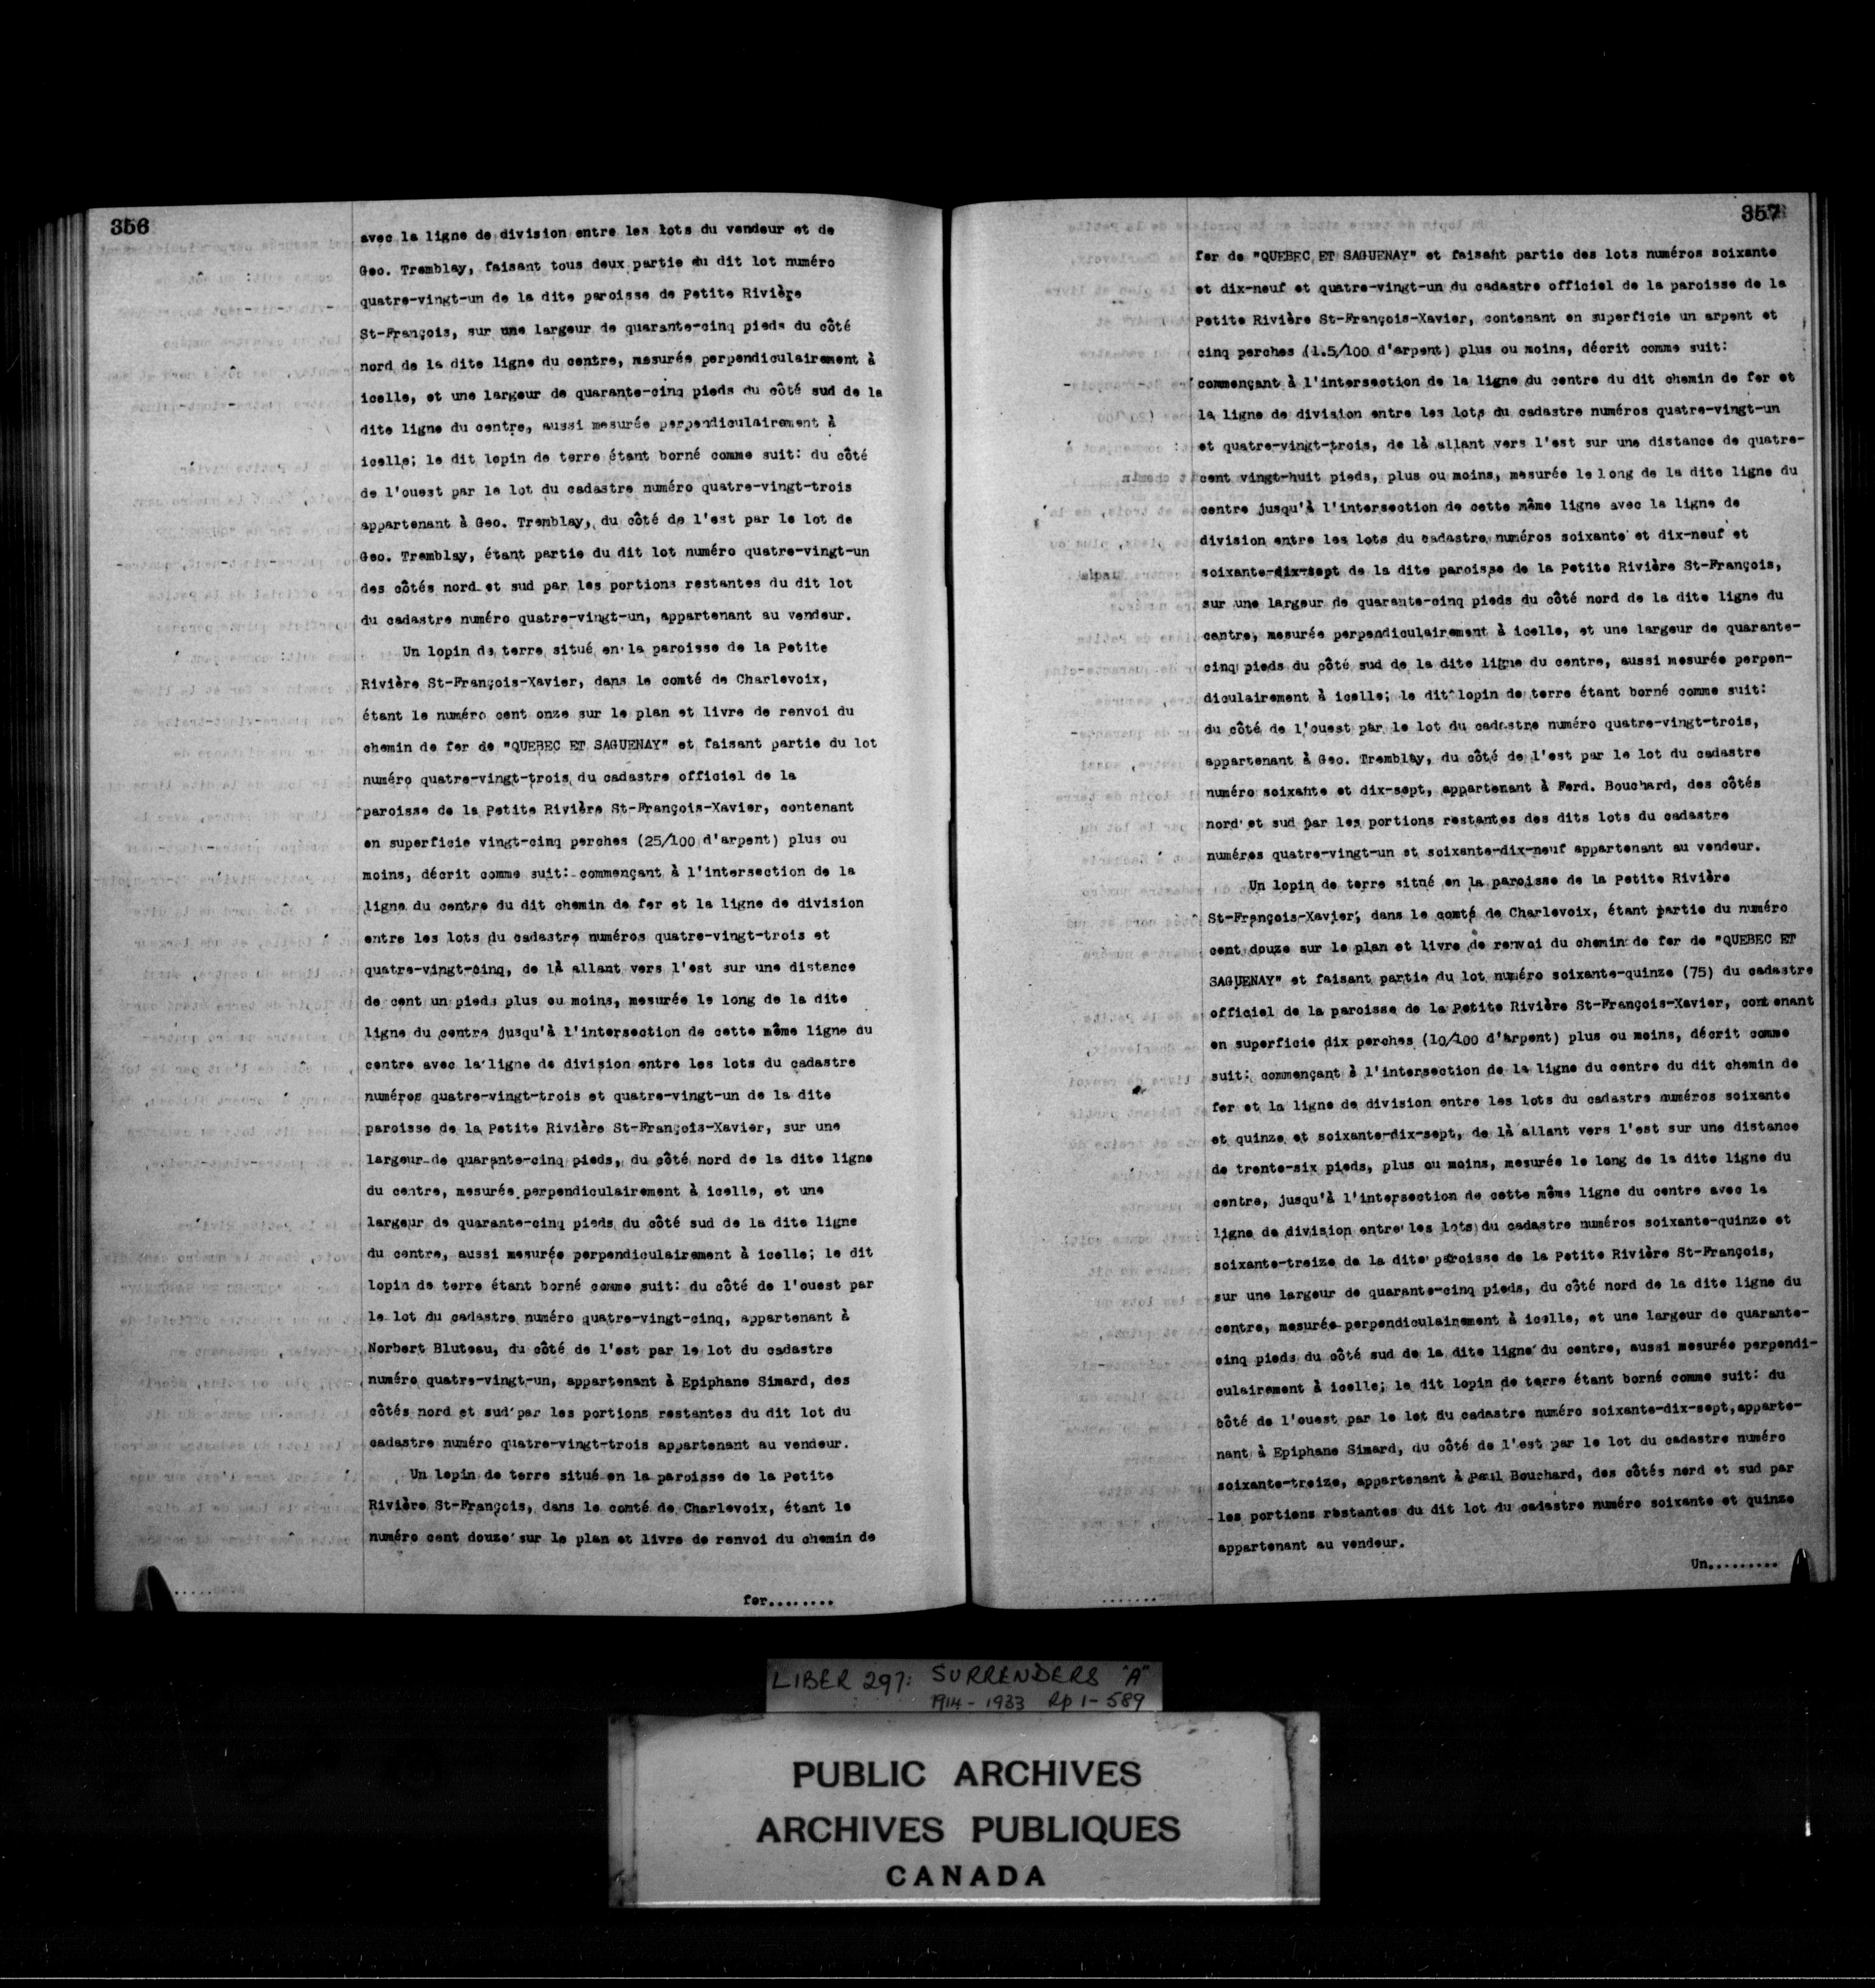 356
avec la ligne de division entre les lots du vendeur et de
Geo. Tremblay, faisant tous deux partie du dit lot numéro
quatre-vingt-un de la dite paroisse de Petite Rivière
St-François, sur une largeur de quarante-cinq pieds du côté
nord de la dite ligne du centre, mesurée perpendiculairement à
icelle, et une largeur de quarante-cinq pieds du côté sud de la
dite ligne du centre, aussi mesurée perpendiculairement à
icelle; le dit lopin de terre étant borné comme suit: du côté
de l'ouest par le lot du cadastre numéro quatre-vingt-trois
appartenant à Geo. Tremblay, du côté de l'est par le lot de
Geo. Tremblay, étant partie du dit lot numéro quatre-vingt-un
des côtés nord et sud par les portions restantes du dit lot
du cadastre numéro quatre-vingt-un, appartenant au vendeur.
Un lopin de terre situé en la paroisse de la Petite
Rivière St-François-Xavier, dans le comté de Charlevoix,
étant le numéro cent onze sur le plan et livre de renvoi du
chemin de fer de "QUEBEC ET SAGUENAY" et faisant partie du lot
numéro quatre-vingt-trois du cadastre officiel de la
paroisse de la Petite Rivière St-François-Xavier, contenant
en superficie vingt-cinq perches (25/100 d'arpent) plus ou
moins, décrit comme suit: commençant à l'intersection de la
ligne du centre du dit chemin de fer et la ligne de division
entre les lots du cadastre numéros quatre-vingt-trois et
quatre-vingt-cinq, de là allant vers l'est sur une distance
de cent un pieds plus ou moins, mesurée le long de la dite
ligne du centre jusqu'à l'intersection de cette même ligne du
centre avec la ligne de division entre les lots du cadastre
numéros quatre-vingt-trois et quatre-vingt-un de la dite
paroisse de la Petite Rivière St-François-Xavier, sur une
largeur de quarante-cinq pieds, du côté nord de la dite ligne
du centre, mesurée perpendiculairement à icelle, et une
largeur de quarante-cinq pieds du côté sud de la dite ligne
du centre, aussi mesurée perpendiculairement à icelle; le dit
lopin de terre étant borné comme suit: du côté de l'ouest par
le lot du cadastre numéro quatre-vingt-cinq, appartenant à
Norbert Bluteau, du côté de l'est par le lot du cadastre
numéro quatre-vingt-un, appartenant à Epiphane Simard, des
côtés nord et sud par les portions restantes du dit lot du
cadastre numéro quatre-vingt-trois appartenant au vendeur.
Un lopin de terre situé en la paroisse de la Petite
Rivière St-François, dans le comté de Charlevoix, étant le
numéro cent douze sur le plan et livre de renvoi du chemin de
fer........
357
fer de "QUEBEC ET SAGUENAY" et faisant partie des lots numéros soixante
et dix-neuf et quatre-vingt-un du cadastre officiel de la paroisse de la
Petite Rivière St-François-Xavier, contenant en superficie un arpent et
cinq perches (1.5/100 d'arpent) plus ou moins, décrit comme suit:
commençant à l'intersection de la ligne du centre du dit chemin de fer et
la ligne de division entre les lots du cadastre numéros quatre-vingt-un
et quatre-vingt-trois, de là allant vers l'est sur une distance de quatre-
cent vingt-huit pieds, plus ou moins, mesurée le long de la dite ligne du
centre jusqu'à l'intersection de cette même ligne avec la ligne de
division entre les lots du cadastre numéros soixante et dix-neuf et
soixante-dix-sept de la dite paroisse de la Petite Rivière St-François,
sur une largeur de quarante-cinq pieds du côté nord de la dite ligne du
centre, mesurée perpendiculairement à icelle, et une largeur de quarante-
cinq pieds du côté sud de la dite ligne du centre, aussi mesurée perpen-
diculairement à icelle; le dit lopin de terre étant borné comme suit:
du côté de l'ouest par le lot du cadastre numéro quatre-vingt-trois,
appartenant à Geo. Tremblay, du côté de l'est par le lot du cadastre
numéro soixante et dix-sept, appartenant à Ferd. Bouchard, des côtés
nord et sud par les portions restantes des dits lots du cadastre
numéros quatre-vingt-un et soixante-dix-neuf appartenant au vendeur.
Un lopin de terre situé en la paroisse de la Petite Rivière
St-François-Xavier, dans le comté de Charlevoix, étant partie du numéro
cent douze sur le plan et livre de renvoi du chemin de fer de "QUEBEC ET
SAGUENAY" et faisant partie du lot numéro soixante-quinze (75) du cadastre
officiel de la paroisse de la Petite Rivière St-François-Xavier, contenant
en superficie dix perches (10/100 d'arpent) plus ou moins, décrit comme
suit: commençant à l'intersection de la ligne du centre du dit chemin de
fer et la ligne de division entre les lots du cadastre numéros soixante
et quinze et soixante-dix-sept, de là allant vers l'est sur une distance
de trente-six pieds, plus ou moins, mesurée le long de la dite ligne du
centre, jusqu'à l'intersection de cette même ligne du centre avec la
ligne de division entre les lots du cadastre numéros soixante-quinze et
soixante-treize de la dite paroisse de la Petite Rivière St-François,
sur une largeur de quarante-cinq pieds, du côté nord de la dite ligne du
centre, mesurée perpendiculairement à icelle, et une largeur de quarante-
cinq pieds du côté sud de la dite ligne du centre, aussi mesurée perpendi-
culairement à icelle; le dit lopin de terre étant borné comme suit: du
côté de l'ouest par le lot du cadastre numéro soixante-dix-sept, apparte-
nant à Epiphane Simard, du côté de l'est par le lot du cadastre numéro
soixante-treize, appartenant à Paul Bouchard, des côtés nord et sud par
les portions restantes du dit lot du cadastre numéro soixante et quinze
appartenant au vendeur.
Un.........
LIBER 297: SURRENDERS "A"
1914-1933 Pp 1-589
PUBLIC ARCHIVES
ARCHIVES PUBLIQUES
CANADA